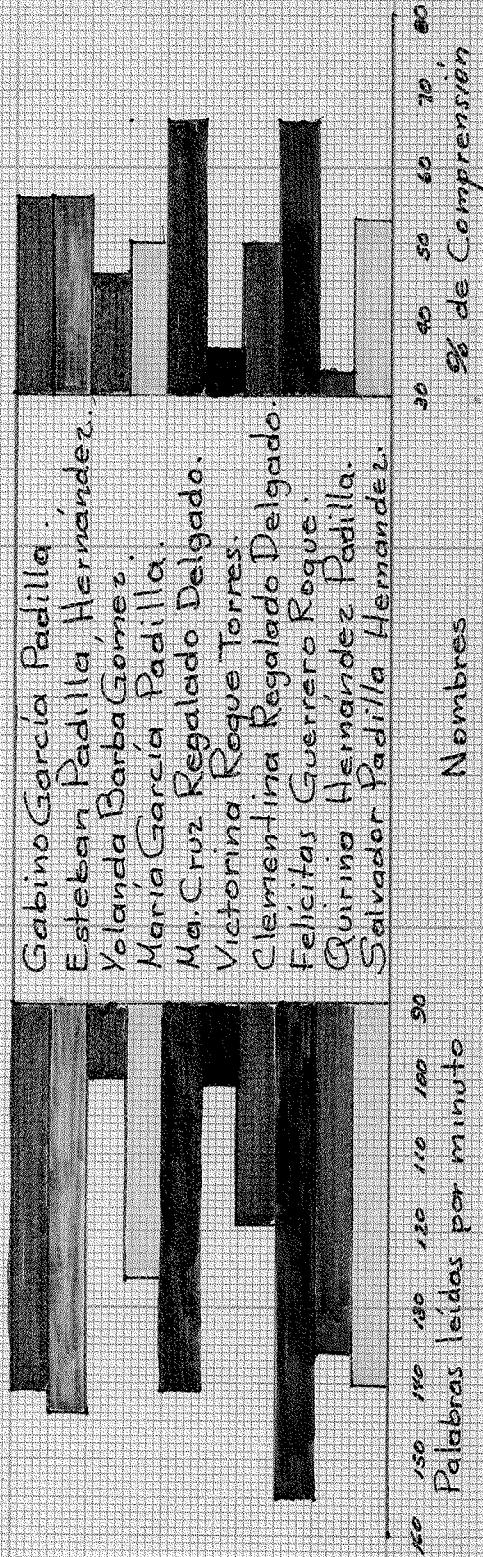 Gabino García Padilla.
Esteban Padilla Hernández.
Yolanda Barba Gómez.
María García Padilla.
Ma. Cruz Regalado Delgado.
Victorina Roque Torres.
Clementina Regalado Delgado.
Felícitas Guerrero Roque.
Quirino Hernández Padilla.
Salvador Padilla Hernandez.
160 150 140 130 120 110 100 90
30 40 50 60 70 80
Palabras leídas por minuto
Nombres
% de Comprensión